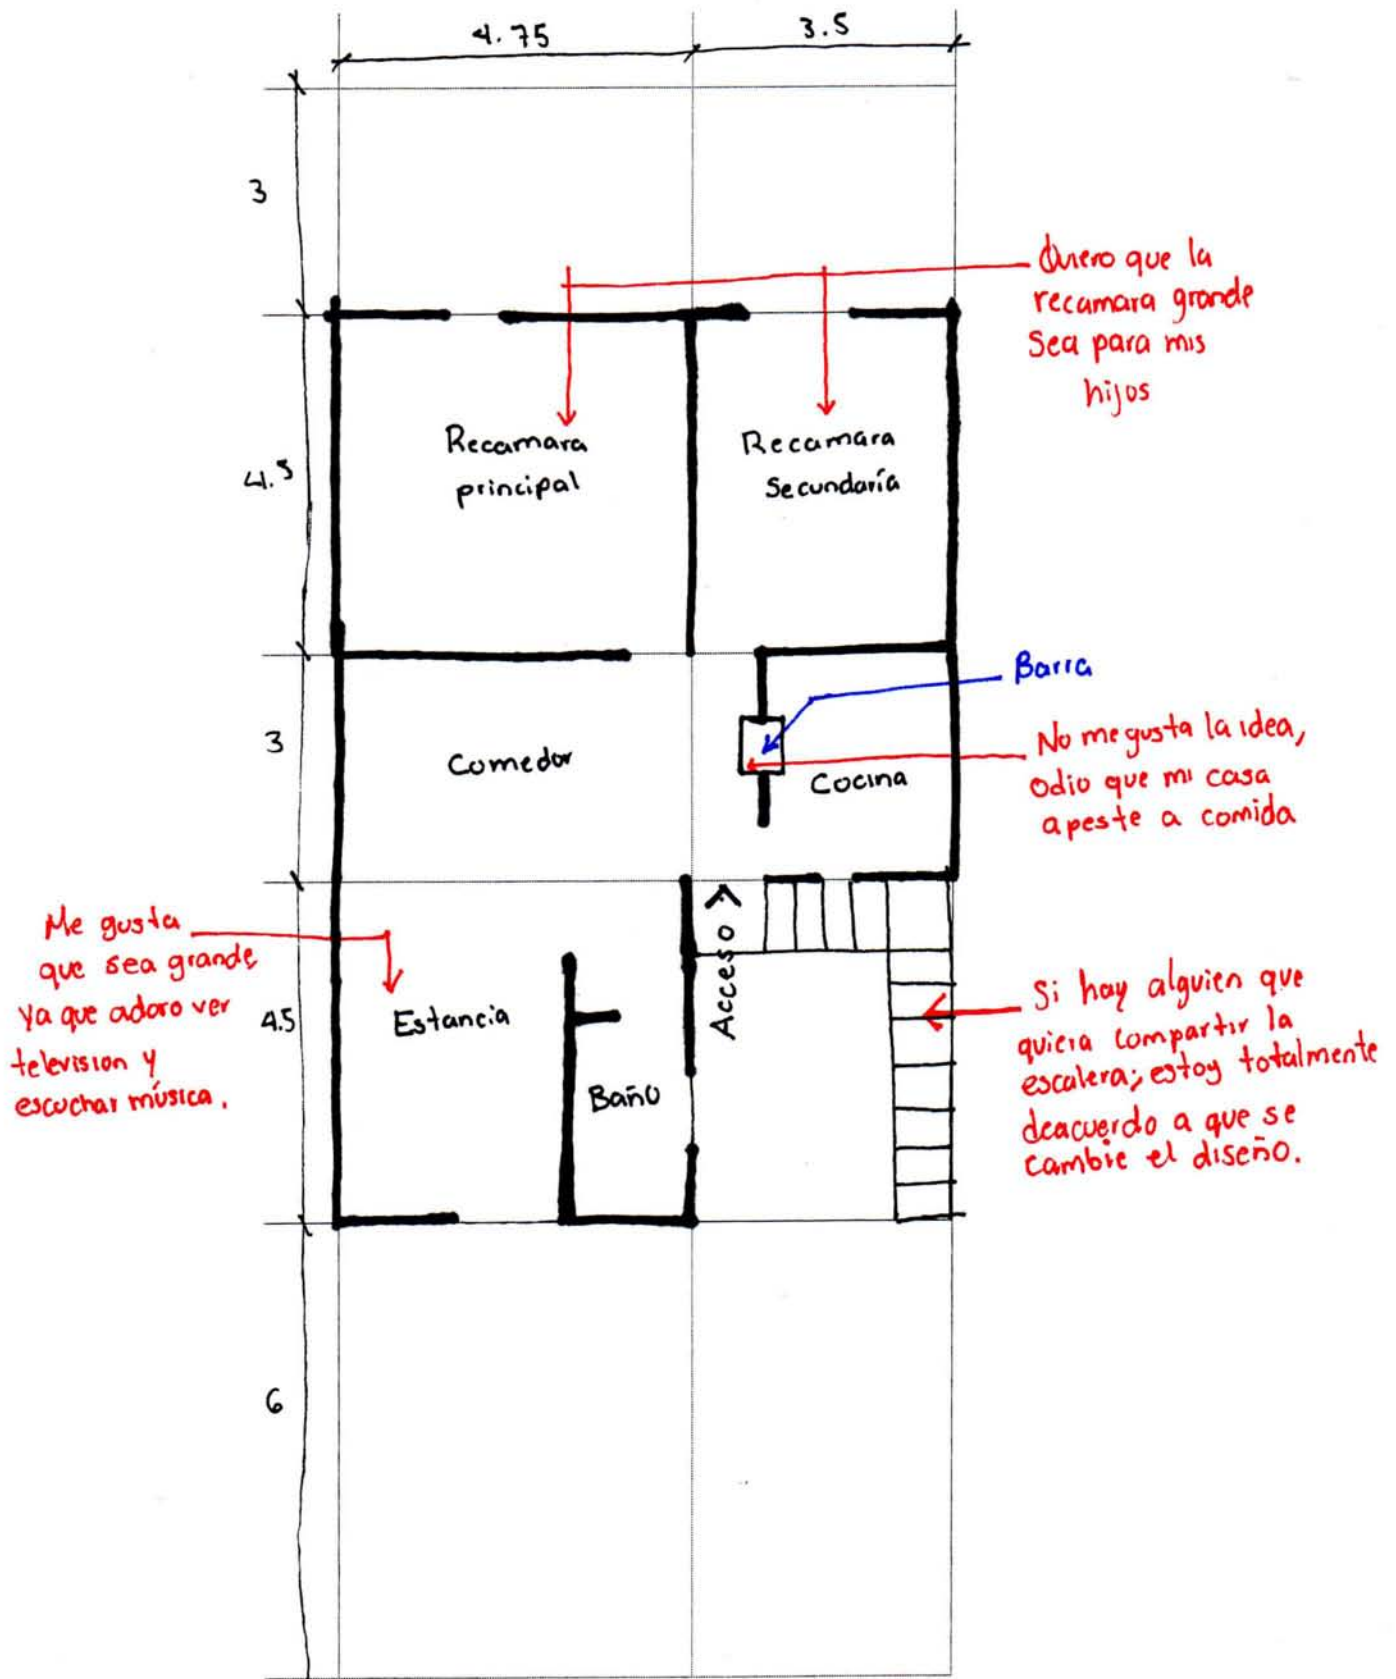 4.75
3.5
3
Quiero que la
recamara grande
Sea para mis
hijos
4.5
Recamara
principal
Recamara
Secundaría
Barra
3
Comedor
Cocina
No me gusta la idea,
odio que mi casa
apeste a comida
Me gusta
que sea grande
ya que adoro ver
television y
escuchar música.
4.5
Estancia
Baño
Acceso
Si hay alguien que
quiera compartir la
escalera; estoy totalmente
deacuerdo a que se
cambie el diseño.
6